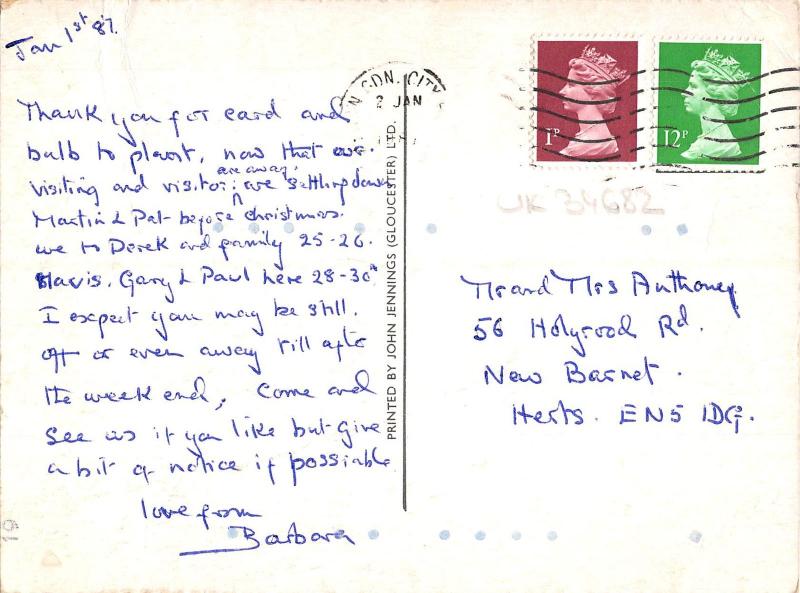 Jan 1st 87.
Thank you for card and
bulb to plant, now that our
visiting and visitors are away, we settling down
Martin & Pat before Christmas.
we to Derek and family 25-26.
Mavis, Gary & Paul here 28-30th
I expect you may be still
off or even away till after
the week end, Come and
see us if you like but give
a bit of notice if possiable
love from
Barbara
PRINTED BY JOHN JENNINGS (GLOUCESTER) LTD.
N GDN. CITY
2 JAN
1P
12P
UK 34682
Mr and Mrs Anthoney
56 Holyrood Rd.
New Barnet.
Herts. EN5 1DG.
19